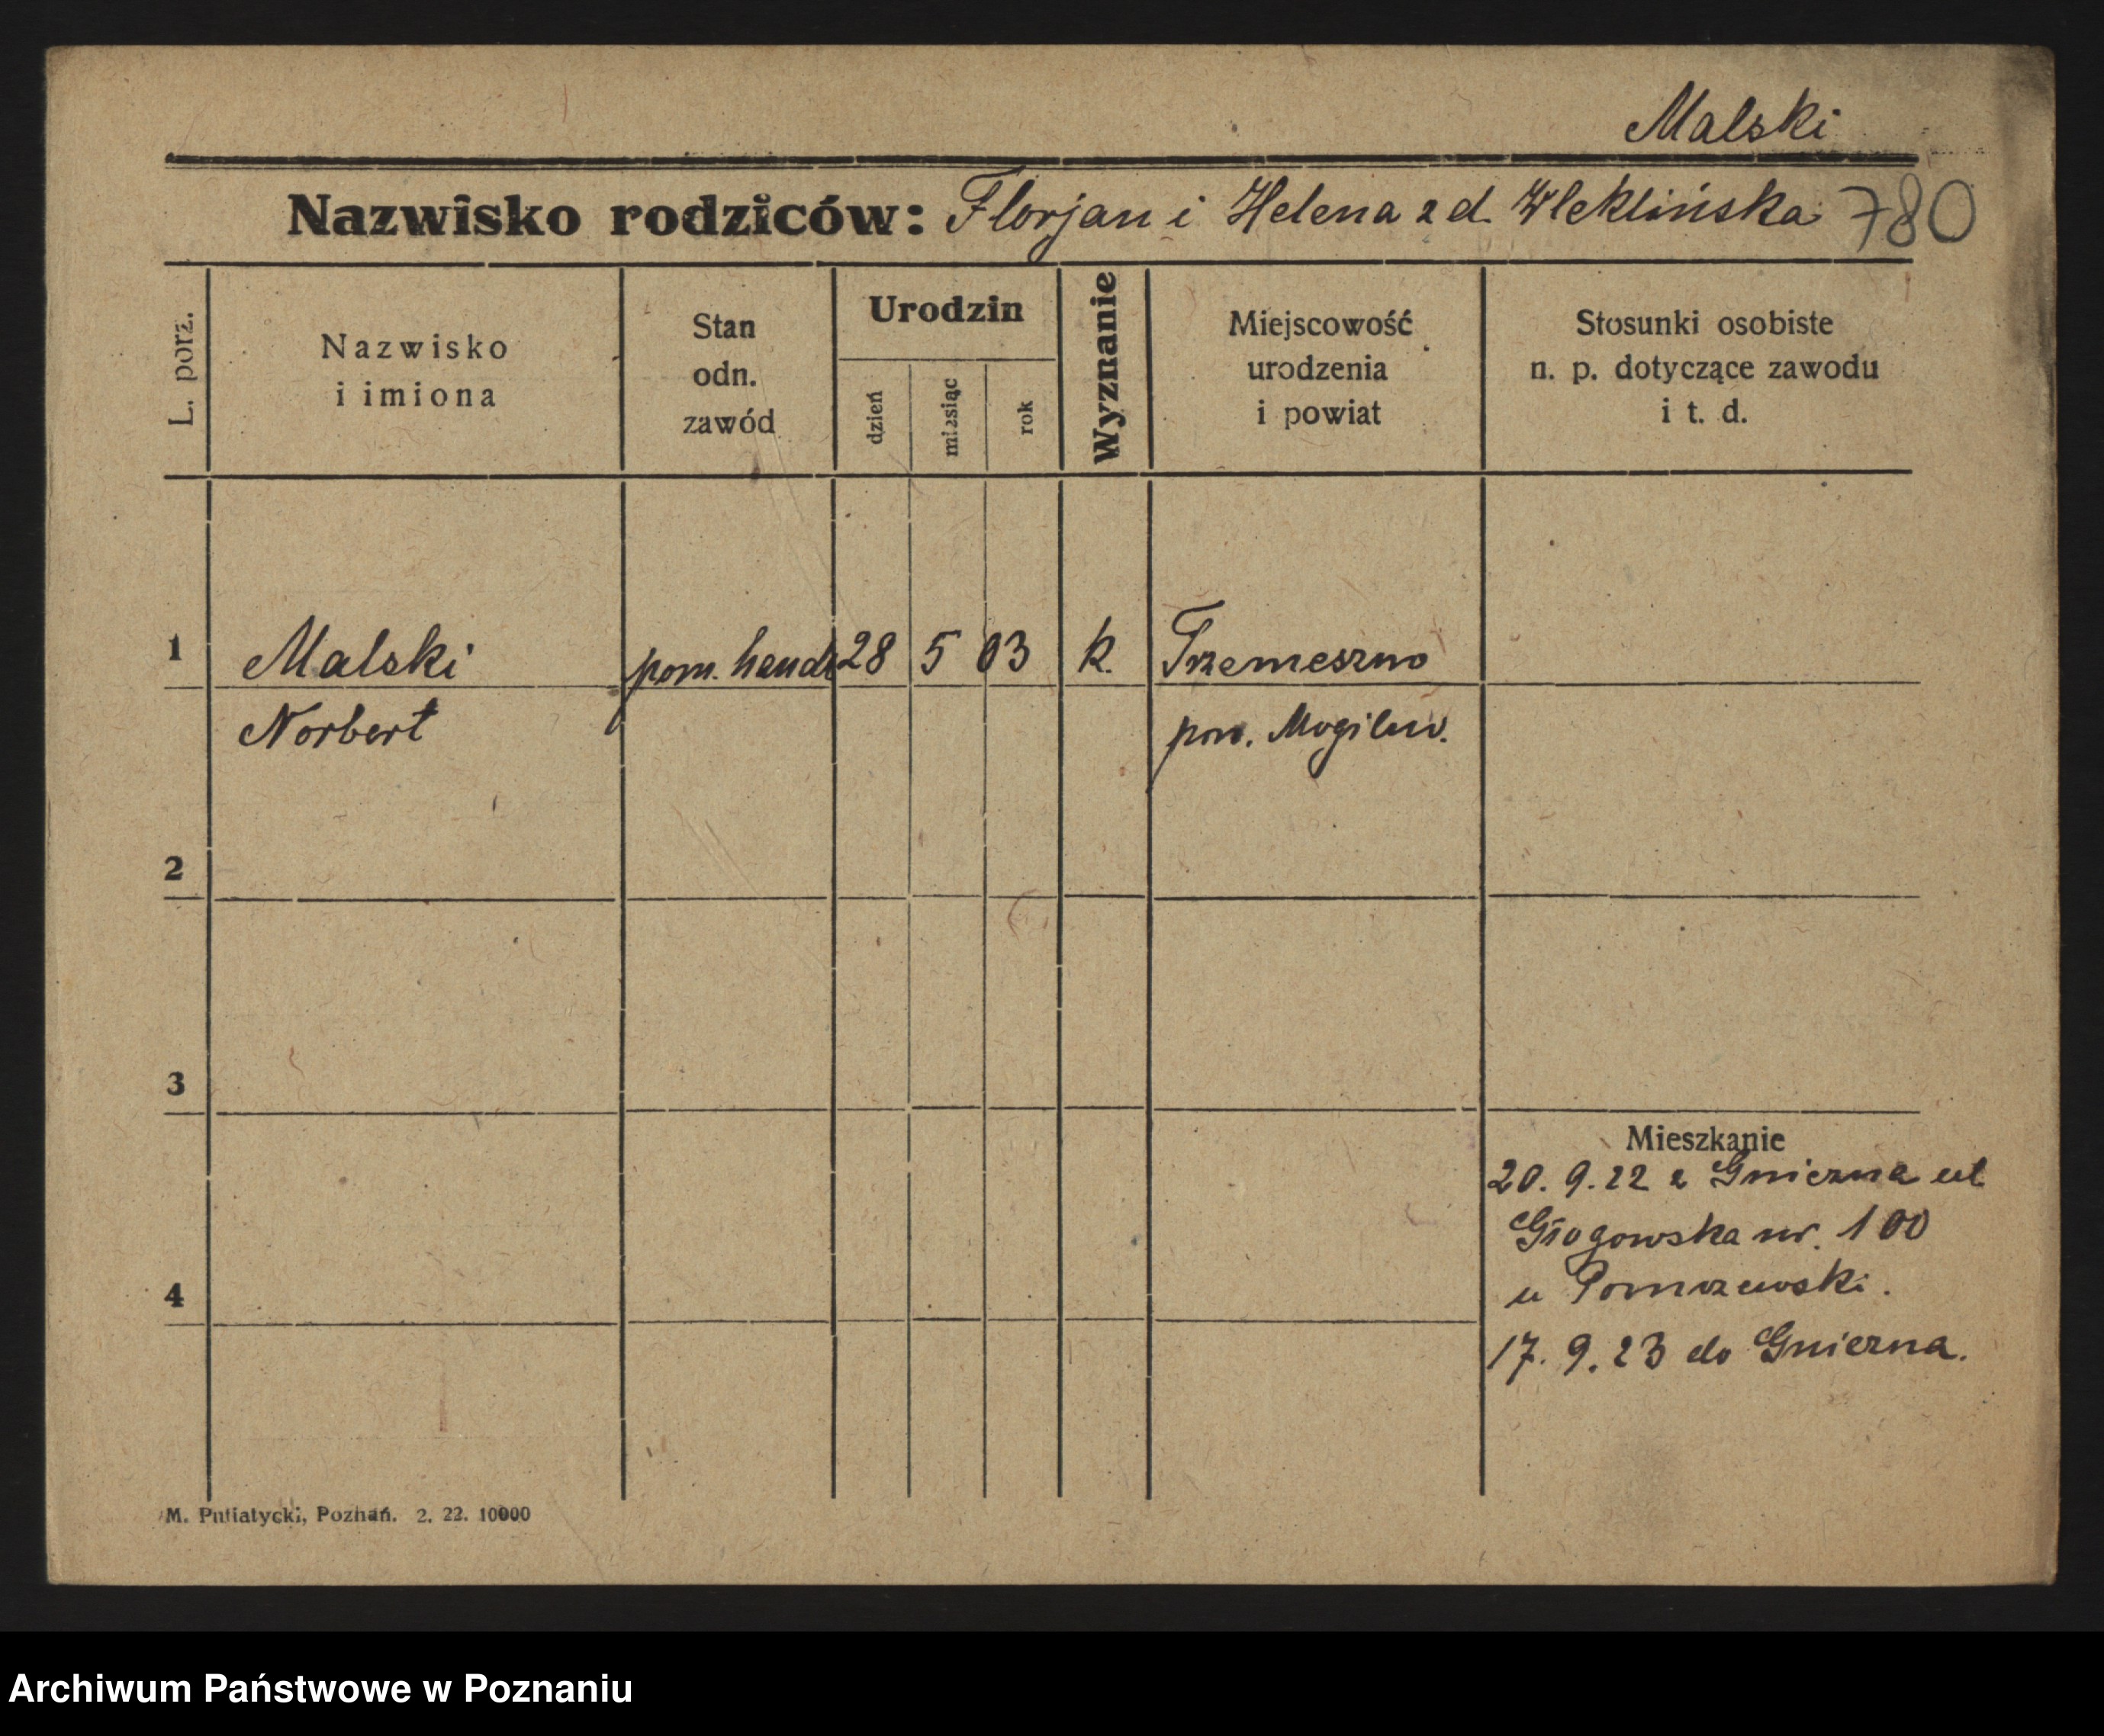 Malski
Nazwisko rodziców: Florjan i Helena z d. Wleklińska 780
L. porz.
Nazwisko
i imiona
Stan
odn.
zawód
Urodzin
dzień
miesiąc
rok
Wyznanie
Miejscowość
urodzenia
i powiat
Stosunki osobiste
n. p. dotyczące zawodu
i t. d.
1 Malski pom. handl 28 5 03 k. Trzemeszno
Norbert pow. Mogiln.
2
3
Mieszkanie
20. 9. 22 z Gniezna ul
Głogowska nr. 100
4
u
17. 9. 23 do Gniezna.
M. Putiatycki, Poznań. 2. 22. 10000
Archiwum Państwowe w Poznaniu